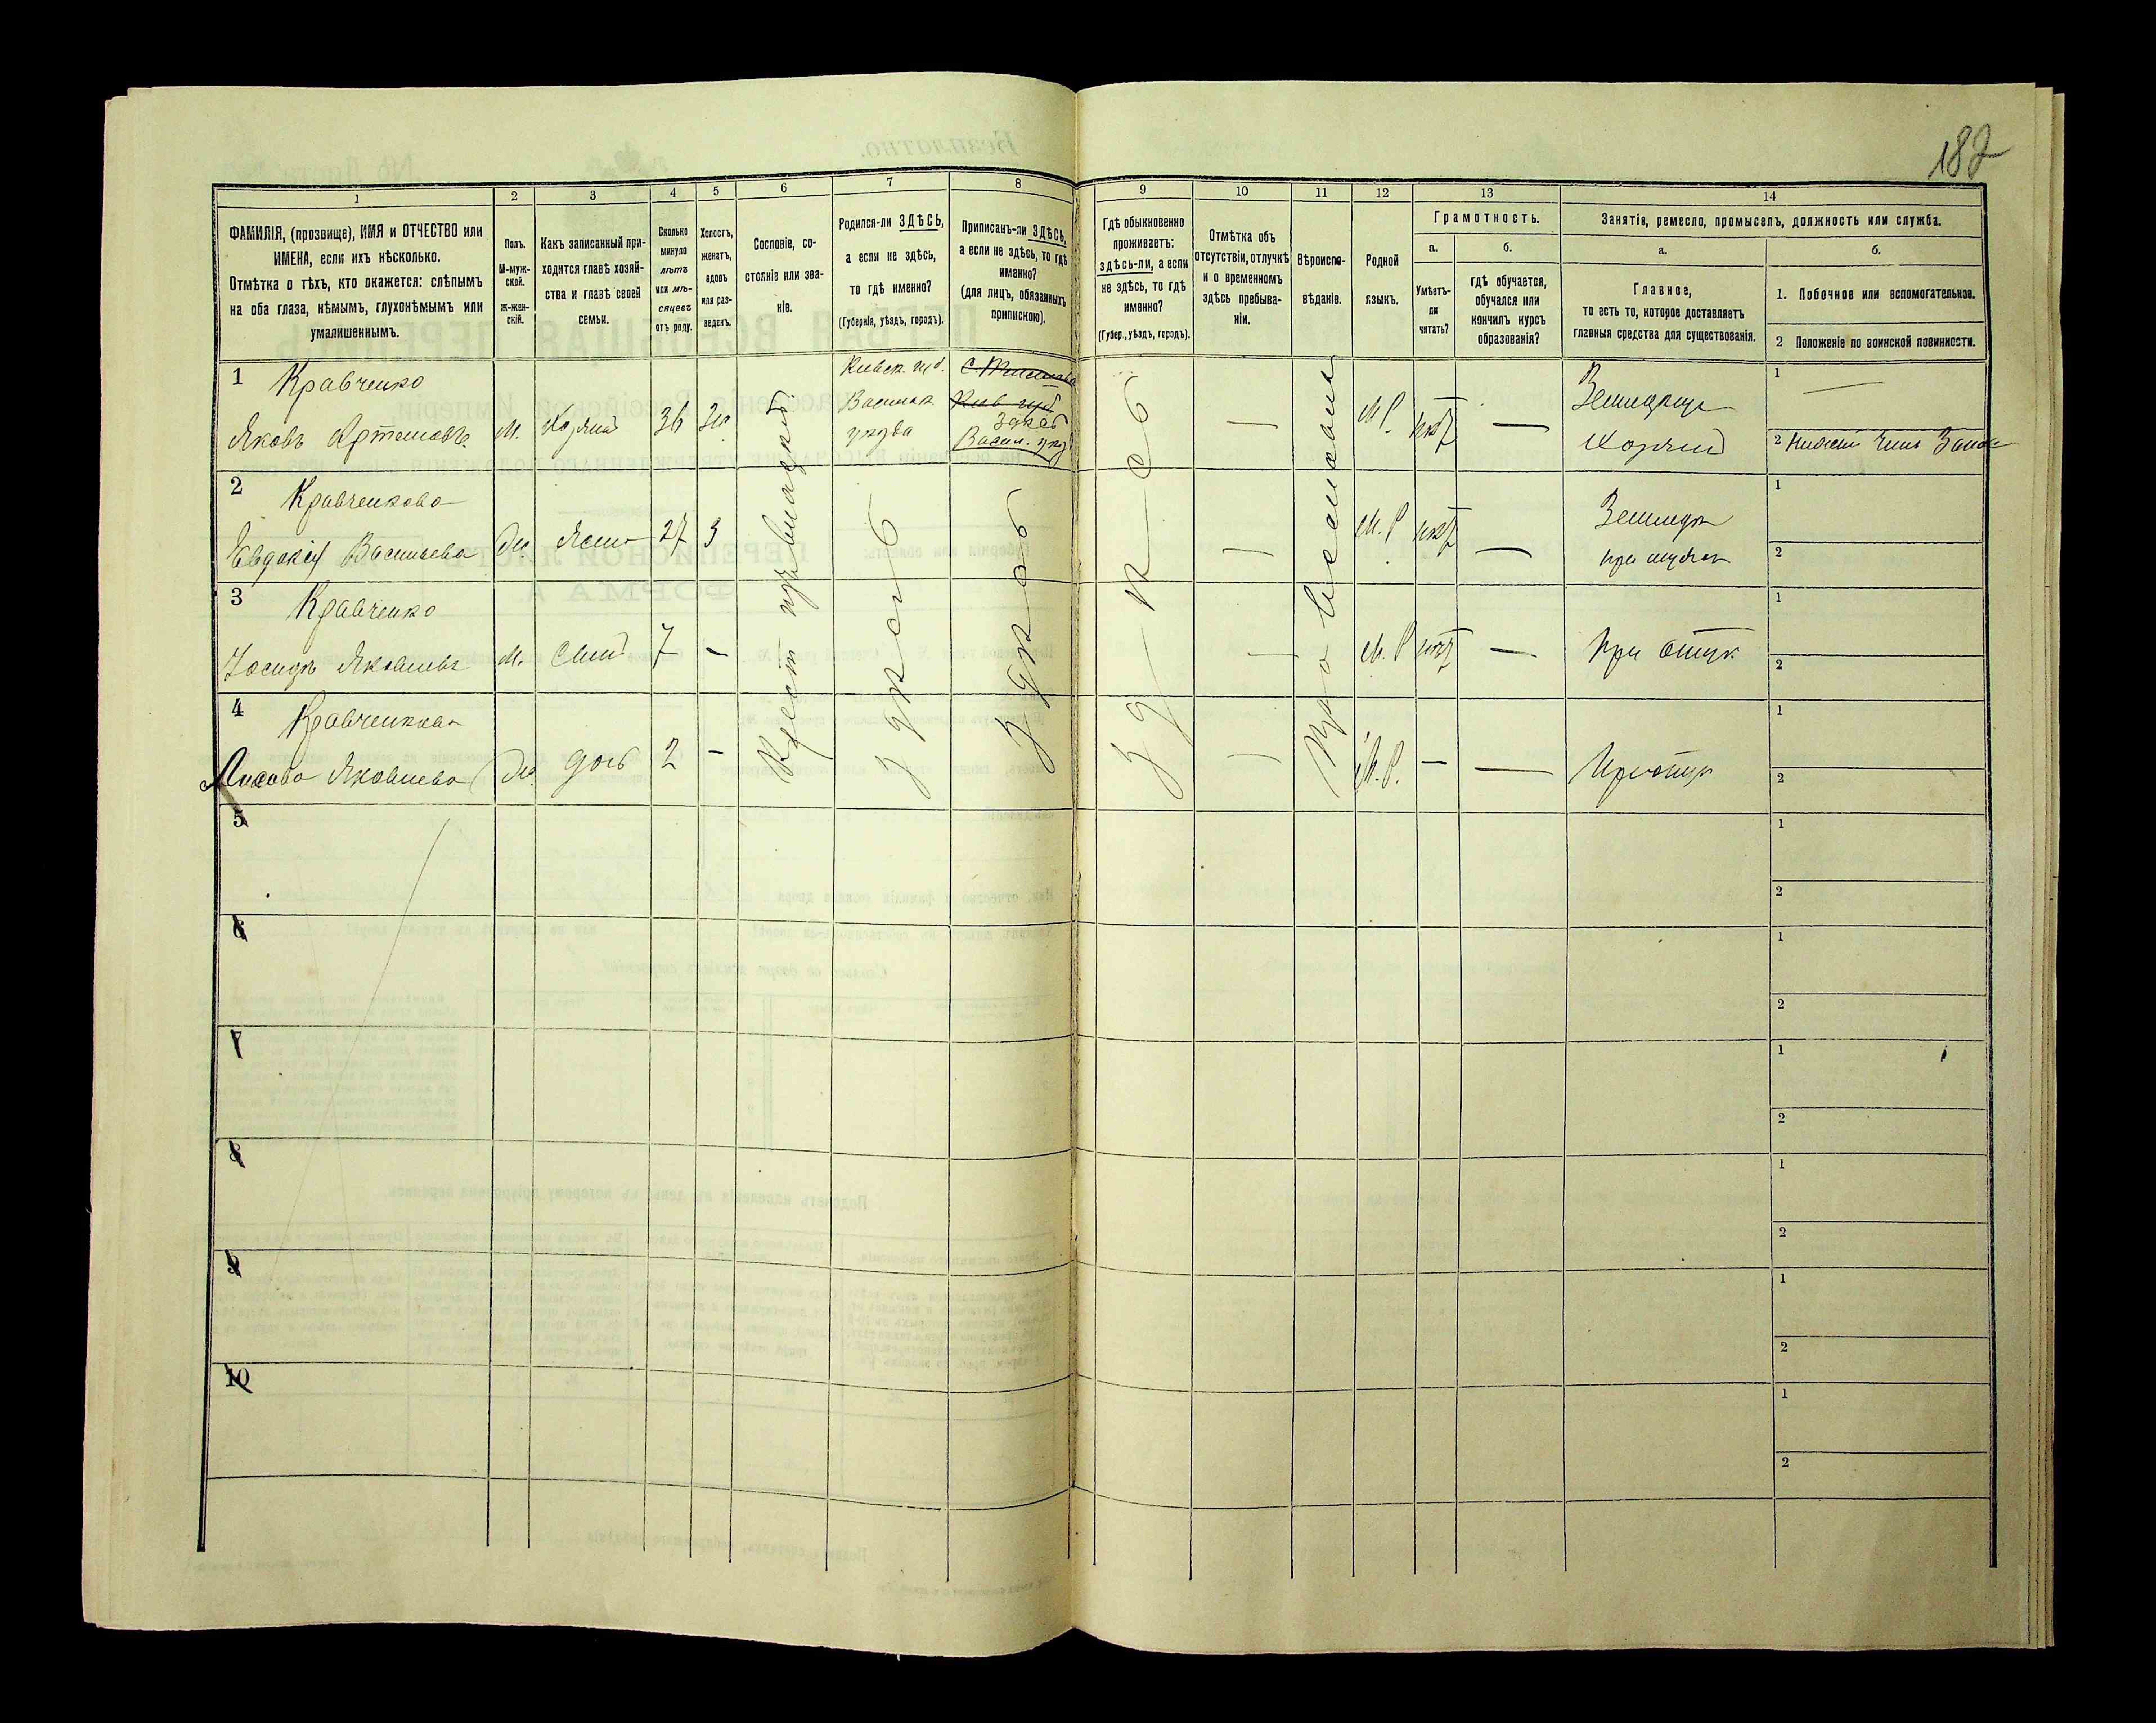 182
1
2
3
4
5
6
7
8
9
10
11
12
13
14
ФАМИЛІЯ, (прозвище), ИМЯ и ОТЧЕСТВО или
ИМЕНА, если ихъ нѣсколько.
Отмѣтка о тѣхъ, кто окажется: слѣпымъ
на оба глаза, нѣмымъ, глухонѣмымъ или
умалишеннымъ.
Полъ.
М-муж-
ской.
Ж-жен-
скій.
Какъ записанный при-
ходится главѣ хозяй-
ства и главѣ своей
семьи.
Сколько
минуло
лѣтъ
или мѣ-
сяцевъ
отъ роду.
Холостъ,
женатъ,
вдовъ
или раз-
веденъ.
Сословіе, со-
стояніе или зва-
ніе.
Родился-ли ЗДѢСЬ,
а если не здѣсь,
то гдѣ именно?
(Губернія, уѣздъ, городъ).
Приписанъ-ли ЗДѢСЬ,
а если не здѣсь, то гдѣ
именно?
(для лицъ, обязанныхъ
припискою).
Гдѣ обыкновенно
проживаетъ:
здѣсь-ли, а если
не здѣсь, то гдѣ
именно?
(Губер., уѣздъ, городъ).
Отмѣтка объ
отсутствіи, отлучкѣ
и о временномъ
здѣсь пребыва-
ніи.
Вѣроиспо-
вѣданіе.
Родной
языкъ.
Грамотность.
а.
Умѣетъ-
ли
читать?
б.
гдѣ обучается,
обучался или
кончилъ курсъ
образованія?
Занятія, ремесло, промыселъ, должность или служба.
а.
Главное,
то есть то, которое доставляетъ
главныя средства для существованія.
б.
1. Побочное или вспомогательное.
2 Положеніе по воинской повинности.
1 Кравченко
Яковъ Артемовъ
М.
Хозяинъ
36
Же
Киевск. губ.
Васильк.
уезда
Киев губ
здесь
Васил. уезд
М.Р.
нет
Земледелец
Хозяин
1
2 Нижний Чин Запас
2 Кравченкова
Евдокія Васильева
Же
Жена
27
З
М.Р.
нет
Земледел
при муже
1
2
3 Кравченко
Яковлевъ
М.
Сын
7
-
М.Р.
нет
При отце
1
2
4 Кравченкова
Яковлева
Же
дочь
2
-
М.Р.
-
При отце
1
2
Крест
здесь
здесь
здесь
Православный
5
1
2
6
1
2
7
1
2
8
1
2
9
1
2
10
1
2